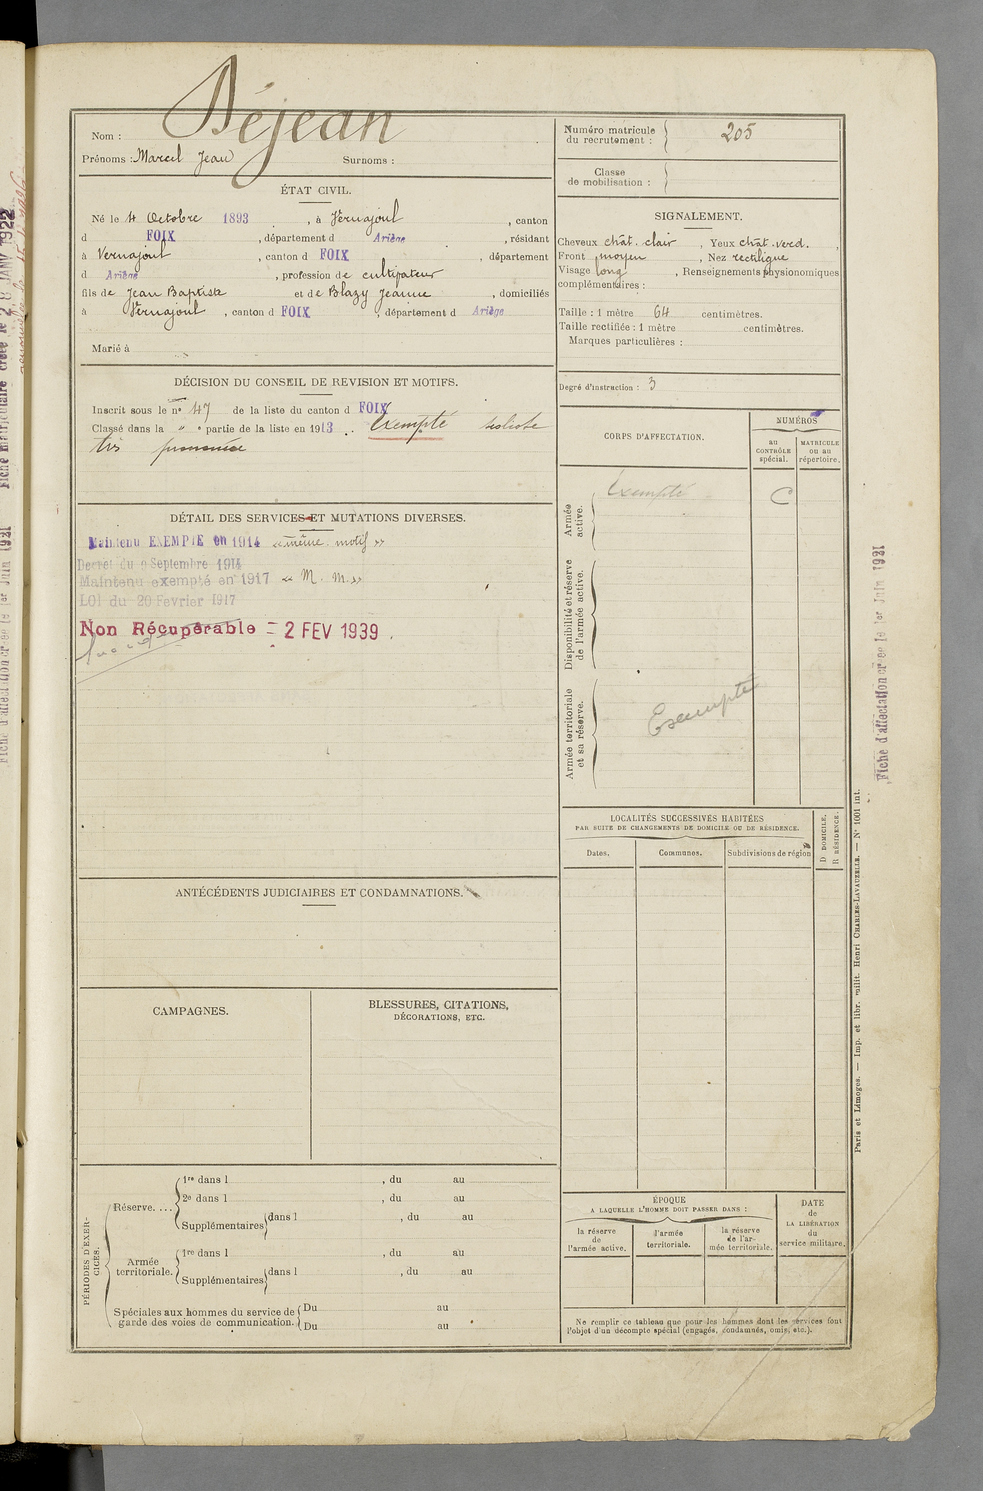 Déjean
Nom :
Prénoms : Marcel Jean Surnoms :
ÉTAT CIVIL.
Né le 4 Octobre 1893, à Vernajoul, canton
d FOIX, département d Ariège, résidant
à Vernajoul, canton d FOIX, département
d Ariège, profession de cultivateur
fils de Jean Baptiste et de Blazy Jeanne, domiciliés
à Vernajoul, canton d FOIX, département d Ariège
Marié à
DÉCISION DU CONSEIL DE REVISION ET MOTIFS.
Inscrit sous le nº 47 de la liste du canton d FOIX
Classé dans la " e partie de la liste en 1913. Exempté scoliose
très prononcée
DÉTAIL DES SERVICES ET MUTATIONS DIVERSES.
Maintenu EXEMPTÉ en 1914 «même motif»
Décret du 9 Septembre 1914
Maintenu exempté en 1917 « M. m.»
LOI du 20 Février 1917
Non Récupérable = 2 FEV 1939.
ANTÉCÉDENTS JUDICIAIRES ET CONDAMNATIONS.
CAMPAGNES.
BLESSURES, CITATIONS,
DÉCORATIONS, ETC.
PÉRIODES D'EXER-
CICES.
Réserve. ...
1re dans l , du au
2e dans l , du au
Supplémentaires dans l , du au
Armée
territoriale.
1re dans l , du au
Supplémentaires dans l , du au
Spéciales aux hommes du service de
garde des voies de communication.
Du au
Du au
Numéro matricule
du recrutement : 205
Classe
de mobilisation :
SIGNALEMENT.
Cheveux chât. clair, Yeux chât. verd.,
Front moyen, Nez rectiligne
Visage long, Renseignements physionomiques
complémentaires :
Taille : 1 mètre 64 centimètres.
Taille rectifiée : 1 mètre centimètres.
Marques particulières :
Degré d'instruction : 3
CORPS D'AFFECTATION.
NUMÉROS
au
CONTRÔLE
spécial.
MATRICULE
ou au
répertoire.
Armée
active.
Exempté C
Disponibilité et réserve
de l'armée active.
Armée territoriale
et sa réserve.
Exempté
LOCALITÉS SUCCESSIVES HABITÉES
PAR SUITE DE CHANGEMENTS DE DOMICILE OU DE RÉSIDENCE.
Dates. Communes. Subdivisions de région
D DOMICILE.
R RÉSIDENCE.
ÉPOQUE
A LAQUELLE L'HOMME DOIT PASSER DANS :
la réserve
de
l'armée active.
l'armée
territoriale.
la réserve
de l'ar-
mée territoriale.
DATE
de
LA LIBÉRATION
du
service militaire.
Ne remplir ce tableau que pour les hommes dont les services font
l'objet d'un décompte spécial (engagés, condamnés, omis, etc.).
Paris et Limoges. — Imp. et libr. milit. Henri CHARLES-LAVAUZELLE. — Nº 1001 int.
Fiche d'affectation créée le 1er Juin 1921
Fiche matriculaire créée le 20 JANV 1922
Fiche d'affectation créée le 1er Juin 1921